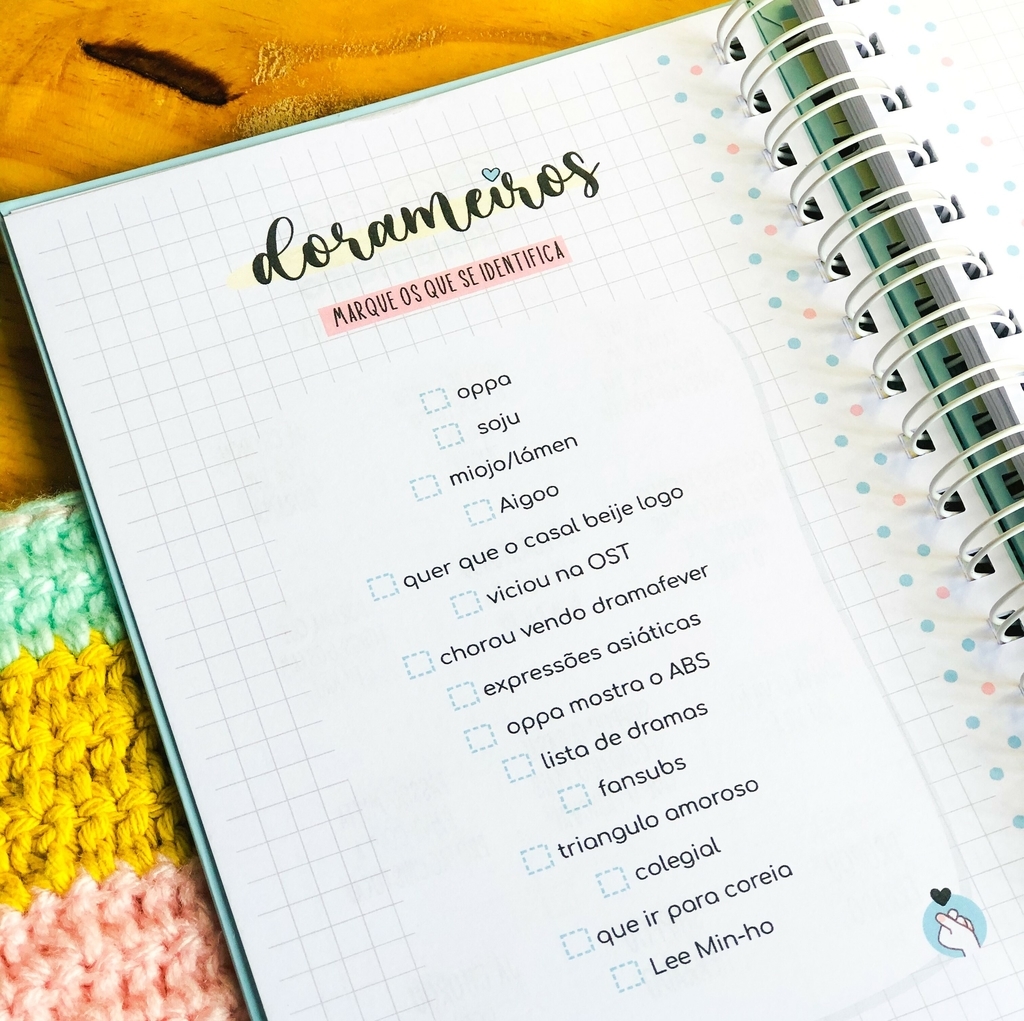 dorameiros
MARQUE OS QUE SE IDENTIFICA
oppa
soju
miojo/lámen
Aigoo
quer que o casal beije logo
viciou na OST
chorou vendo dramafever
expressões asiáticas
oppa mostra o ABS
lista de dramas
fansubs
triangulo amoroso
colegial
que ir para coreia
Lee Min-ho